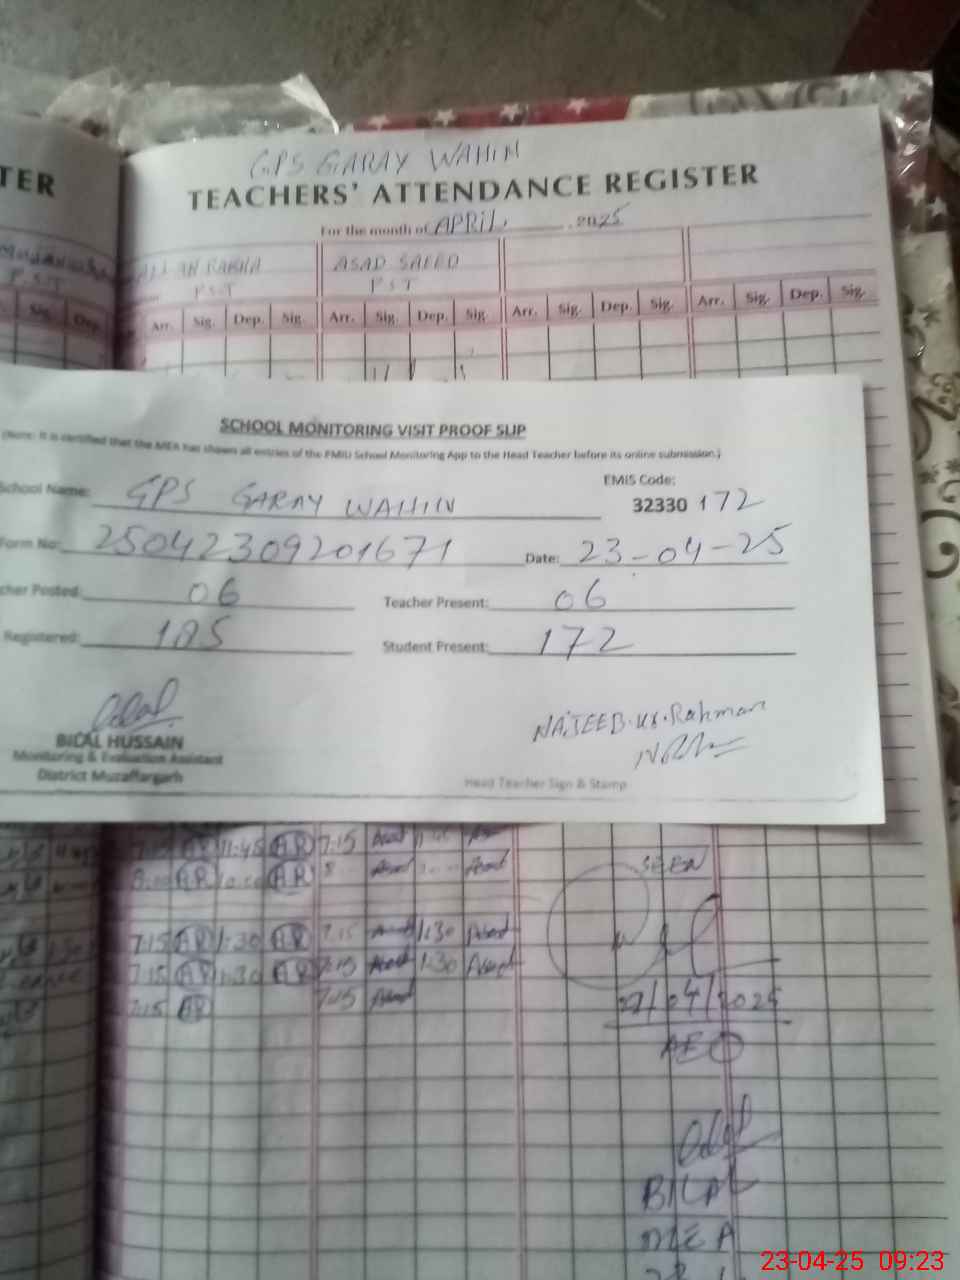 GPS GARAY WAHIN
TER
TEACHERS' ATTENDANCE REGISTER
For the month of APRIL, 2025
ALLAH RAKHA ASAD SAEED
P.S.T P.S.T
Sig. Dep. Arr. Sig. Dep. Sig. Arr. Sig. Dep. Sig. Arr. Sig. Dep. Sig. Arr. Sig. Dep. Sig.
SCHOOL MONITORING VISIT PROOF SLIP
(Note: It is certified that the MEA has shown all entries of the PMIU School Monitoring App to the Head Teacher before its online submission.)
School Name: GPS GARAY WAHIN EMIS Code:
32330 172
Form No: 25042309201671 Date: 23-04-25
cher Posted: 06 Teacher Present: 06
Registered: 185 Student Present: 172
BILAL HUSSAIN
Monitoring & Evaluation Assistant
District Muzaffargarh
NAJEEB.Ur.Rahman
Head Teacher Sign & Stamp
AR 1:45 AR 7:15 Asad
8:00 AR AR 8 Asad Asad SEEN
7:15 AR 1:30 AR 7:15 Asad 1:30 Asad
7:15 AR 1:30 AR 7:15 Asad 1:30 Asad
7:15 AR 7:15 Asad
/04/2025
AEO
BILAL
MEA
23-04-25 09:23